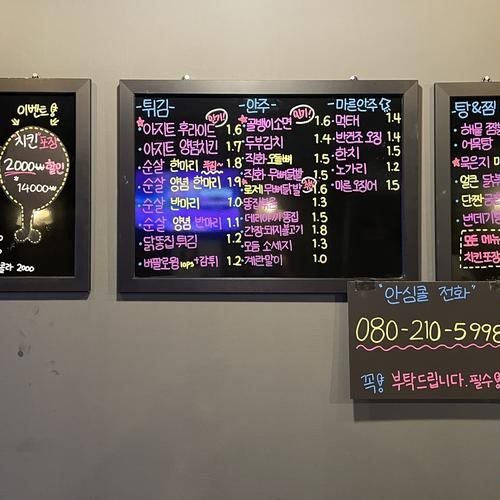 이벤트
치킨 포장
2000₩ 할인
14000₩
콜라 2000
튀김-
아지트 후라이드 1.6
아지트 양념치킨 1.7
순살 한마리 1.8
순살 양념 한마리 1.9
순살 반마리 1.0
순살 양념 반마리 1.1
닭똥집 튀김 1.2
버팔로윙 10PS+감튀 1.2
안주-
인기!
골뱅이소면 1.6
두부김치 1.4
직화 오돌뼈 1.5
직화 무뼈닭발 1.5
로제 무뼈닭발 1.6
똥집볶음
데리야끼 똥집 1.5
간장돼지불고기 1.8
모듬 소세지 1.3
계란말이 1.0
마른안주
먹태 1.4
반건조 오징 1.4
한치 1.5
노가리 1.2
마른오징어 1.5
탕&찜
해물 짬뽕
어묵탕
묵은지
얼큰
단짠
번데기
모든 메뉴
치킨포장
"안심콜 전화"
080-210-5998
꼭 부탁드립니다. 필수